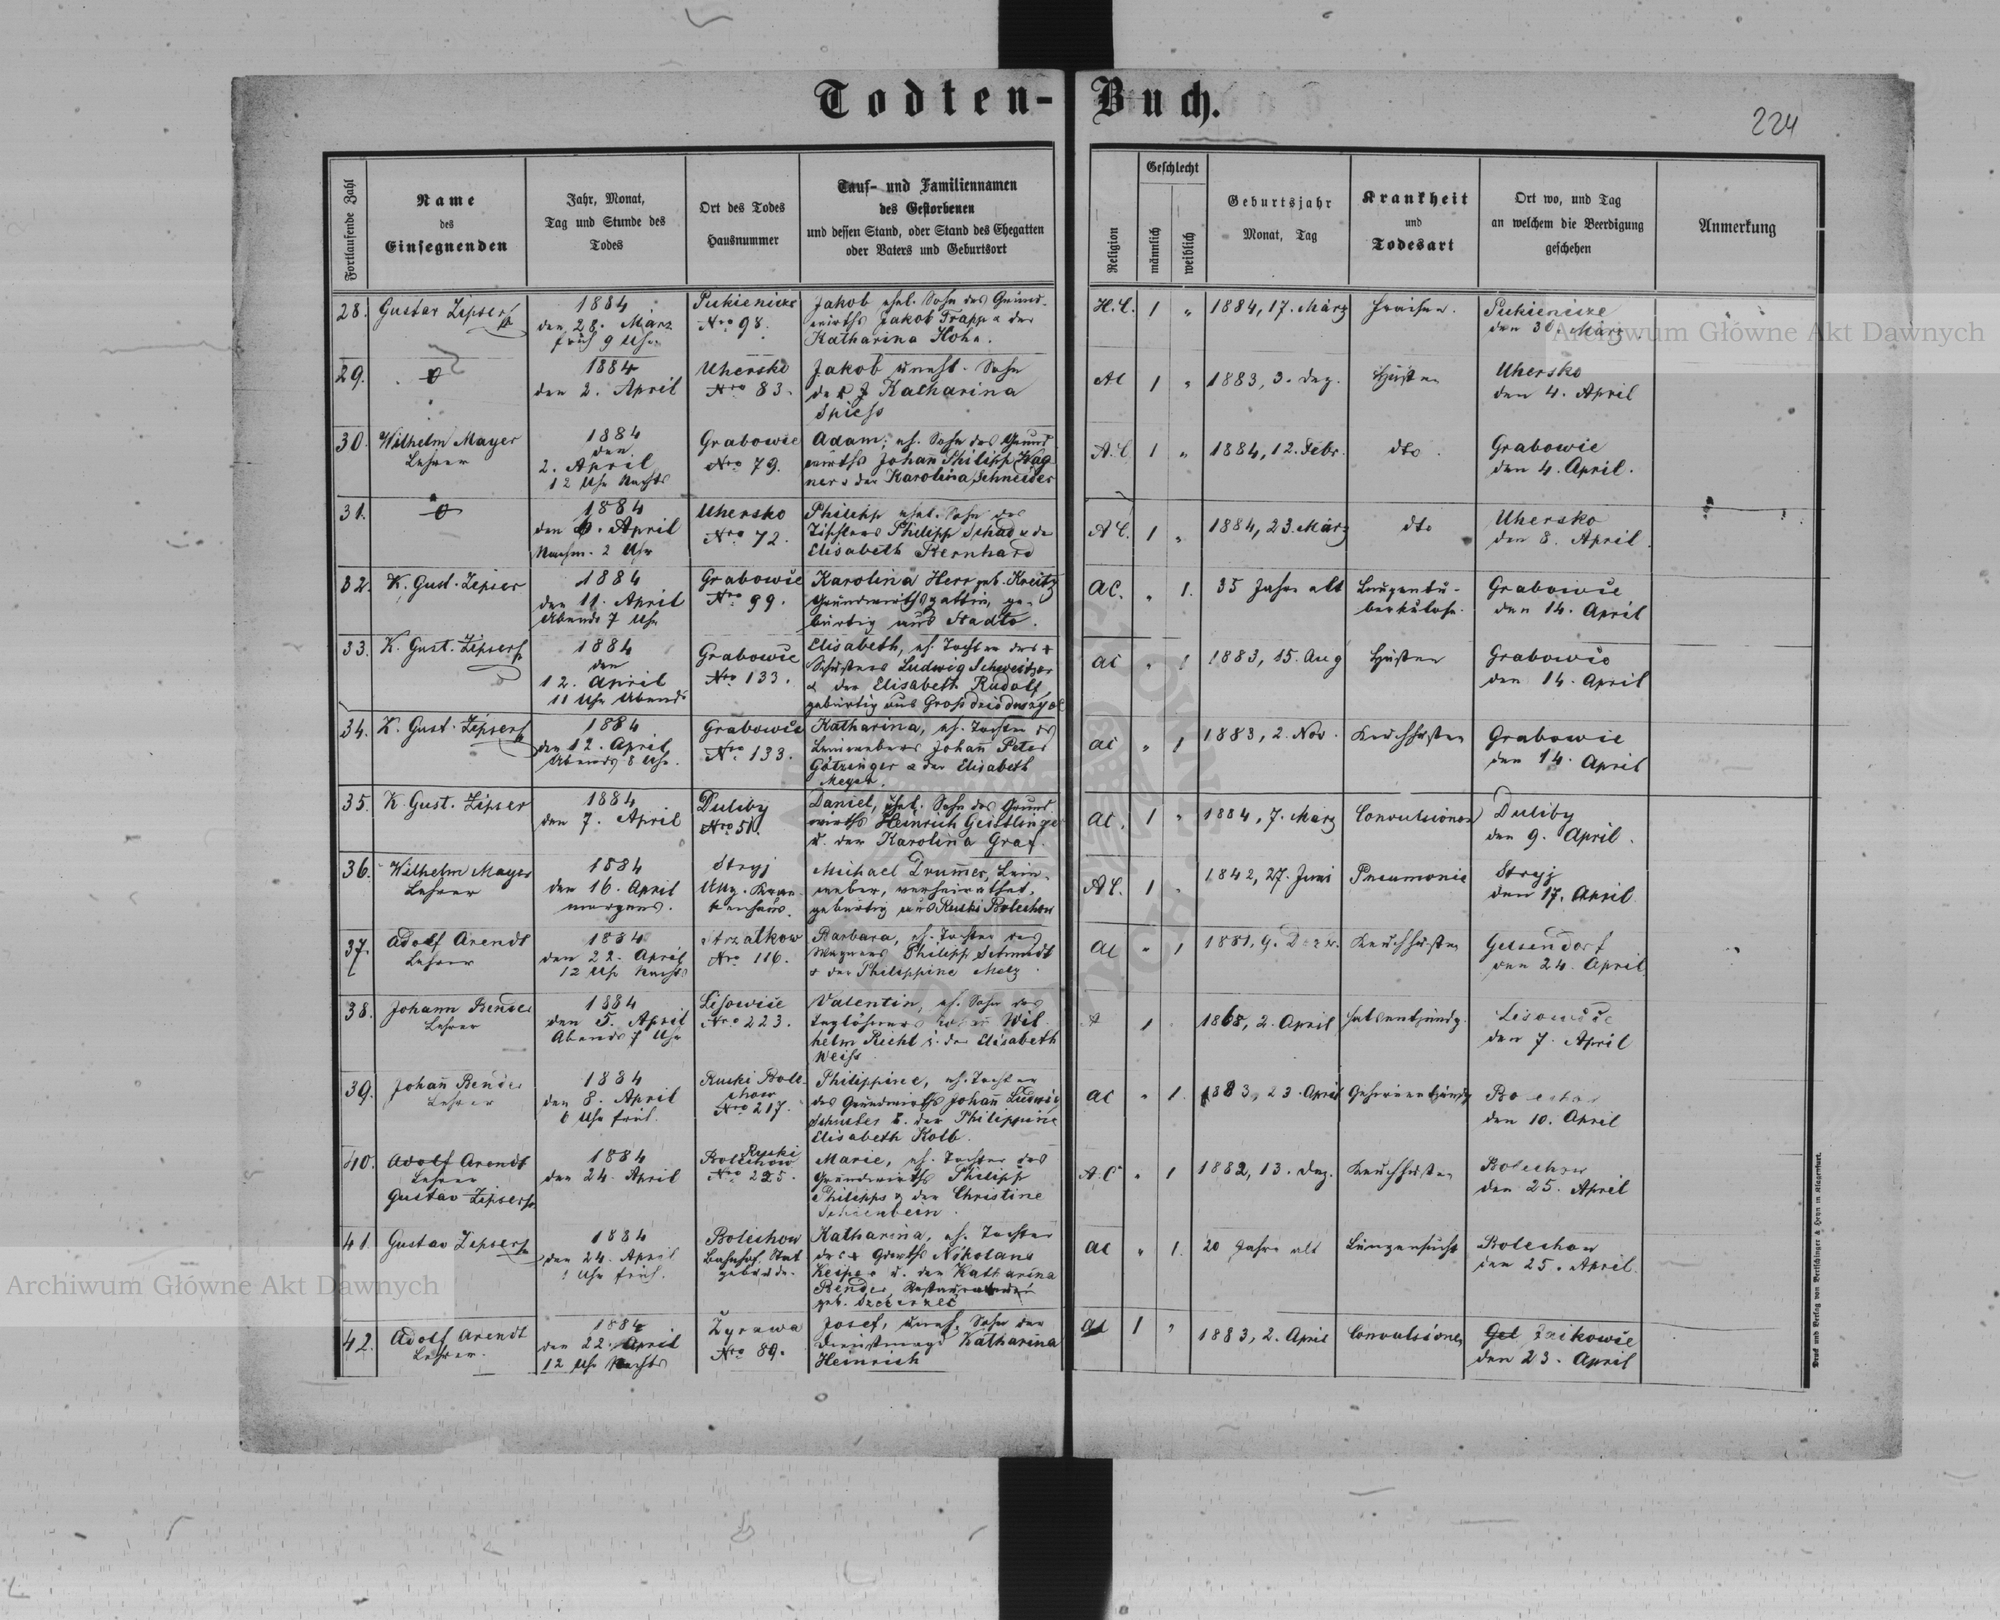 Todten-Buch.
224
Fortlaufende Zahl
Name
des
Einsegnenden
Jahr, Monat,
Tag und Stunde des
Todes
Ort des Todes
Hausnummer
Tauf- und Familiennamen
des Gestorbenen
und dessen Stand, oder Stand des Ehegatten
oder Vaters und Geburtsort
Religion
Geschlecht
männlich
weiblich
Geburtsjahr
Monat, Tag
Krankheit
und
Todesart
Ort wo, und Tag
an welchem die Beerdigung
geschehen
Anmerkung
28.
Gustav Zipser
1884
den 28. März
früh 9 Uhr
Pukienicze
Nro 98.
Jakob ehel. Sohn des Grund-
wirths Jakob Trapp u der
Katharina Hohn.
H.C.
1
"
1884, 17. März
Fraisen.
Pukienicze
den 30. März
Archiwum Główne Akt Dawnych
29.
1884
den 2. April
Uhersko
Nro 83.
Jakob unehl. Sohn
der Katharina
Spiess
AC
1
"
1883, 3. Dez.
Husten
Uhersko
den 4. April
30.
Wilhelm Mayer
Lehrer
1884
den
2. April
12 Uhr Nachts
Grabowce
Nro 79.
Adam, eh. Sohn des Grund
wirths Johann Philipp Wag
ner u der Karolina Schneider
A.C.
1
"
1884, 12. Febr.
dto.
Grabowie
den 4. April.
31.
1884
den 6. April
Nachm. 2 Uhr
Uhersko
Nro 72.
Philipp ehel. Sohn des
Tischlers Philipp Schad u der
Elisabeth Bernhard
A.C.
1
"
1884, 23. März
dto
Uhersko
den 8. April.
32.
K. Gust. Zipser
1884
den 11. April
Abends 7 Uhr
Grabowce
Nro 99.
Karolina Herr geb. Kreitz
Grundwirthsgattin, ge-
bürtig aus Stadlo.
AC.
"
1.
35 Jahre alt
Lungentu-
berkulose.
Grabowce
den 14. April
33.
K. Gust. Zipser
1884
den
12. April
11 Uhr Abends
Grabowce
Nro 133.
Elisabeth, eh. Tochter des +
Schusters Ludwig Schweitzer
u der Elisabeth Rudolf,
gebürtig aus
AC
"
1
1883, 15. Aug
Husten
Grabowce
den 14. April
34.
K. Gust. Zipser
1884
den 12. April
Abends 8 Uhr.
Grabowce
Nro 133.
Katharina, eh. Tochter des
Leinwebers Johann Peter
Götzinger u der Elisabeth
Meyer.
AC
"
1
1883, 2. Nov.
Keuchhusten
Grabowce
den 14. April
35.
K. Gust. Zipser
1884
den 7. April
Duliby
Nro 51.
Daniel, ehel. Sohn des Grund
wirths Heinrich Geistlinger
u. der Karolina Graf.
AC.
1
"
1884, 7. März
Convulsionen
Duliby
den 9. April.
36.
Wilhelm Mayer
Lehrer
1884
den 16. April
morgens.
Stryj
Allg. Kran-
kenhaus.
Michael Drummer, Lein-
weber, verheirathet,
gebürtig aus Ruski Bolechow
A.C.
1
"
1842, 27. Juni
Pneumonie
Stryj
den 17. April
37.
Adolf Arendt
Lehrer
1884
den 22. April
12 Uhr Nachts
Strzalkow
Nro 116.
Barbara, eh. Tochter des
Wagners Philipp Schmidt
u der Philippine Metz.
AC
"
1
1881, 9. Dezr.
Keuchhusten
Gelsendorf
den 24. April
38.
Johann Bender
Lehrer
1884
den 5. April
Abends 7 Uhr
Lisowice
Nro 223.
Valentin, eh. Sohn des
Taglöhners Johann Wil
helm Richt u. der Elisabeth
Weiss
A
1
1868, 2. April
Halsentzündg.
Lisowice
den 7. April
39.
Johann Bender
Lehrer
1884
den 8. April
6 Uhr früh.
Ruski Bole-
chow
Nro 217.
Philippine, eh. Tochter
des Grundwirths Johann Ludwig
Schuster u. der Philippine
Elisabeth Kolb.
AC
"
1.
1883, 23. April
Gehirnentzündg
Bolechow
den 10. April
40.
Adolf Arendt
Lehrer
Gustav Zipser
1884
den 24. April
Ruski
Bolechow
Nro 225.
Marie, eh. Tochter des
Grundwirths Philipp
Philipps u der Christine
Schienbein.
A.C
"
1
1882, 13. Dez.
Keuchhusten
Bolechow
den 25. April
41.
Gustav Zipser
1884
den 24. April
1 Uhr früh.
Bolechow
Bahnhof, Stat
gebäude.
Katharina, eh. Tochter
des + Grwths Nikolaus
Keiper u. der Katharina
Bender,
geb.
AC
"
1.
20 Jahre alt
Lungensucht
Bolechow
den 25. April.
Archiwum Główne Akt Dawnych
42.
Adolf Arendt
Lehrer.
1884
den 22. April
12 Uhr Nachts
Zyrawa
Nro 89.
Josef, unehl. Sohn der
Dienstmagd Katharina
Heinrich
AC
1
"
1883, 2. April
Convulsionen
Gel Zaikowce
den 23. April
Druck und Verlag von Bertschinger & Heyn in Klagenfurt.